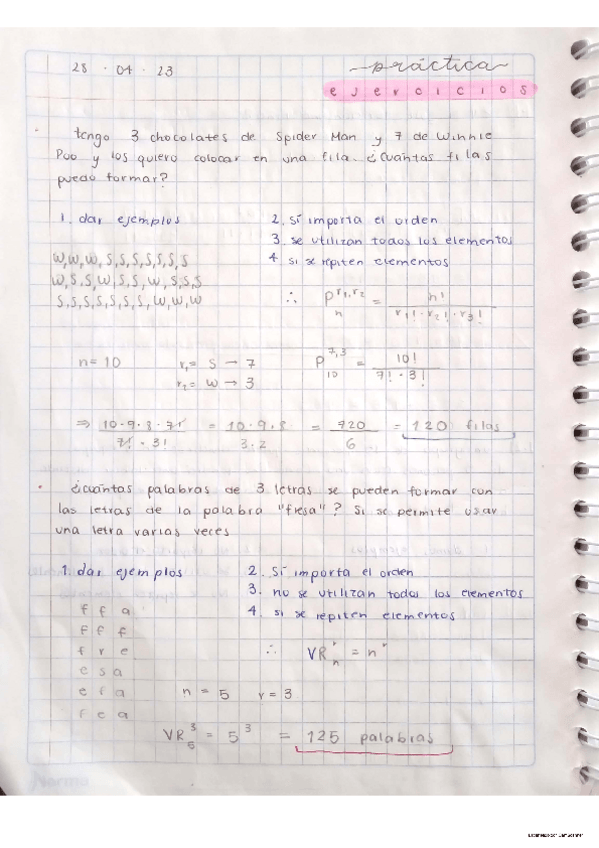 28 · 04 · 23
práctica
ejercicios
· tengo 3 chocolates de Spider Man y 7 de Winnie
Poo y los quiero colocar en una fila. ¿Cuantas filas
puedo formar?
1. dar ejemplos
2. Sí importa el orden
3. se utilizan todos los elementos
4 si se repiten elementos
W, W, W, S, S, S, S, S, S, S
W, S, S, W, S, S, W, S, S, S
S, S, S, S, S, S, S, W, W, W
∴ P r₁, r₂ n = n! / r₁! · r₂! · r₃!
n = 10
r₁ = S → 7
r₂ = W → 3
P 7,3 10 = 10! / 7! · 3!
⇒ 10·9·8·7! / 7! · 3! = 10·9·8 / 3·2 = 720 / 6 = 120 filas
· ¿cuántas palabras de 3 letras se pueden formar con
las letras de la palabra "fresa"? Si se permite usar
una letra varias veces
1. dar ejemplos
2. Sí importa el orden
3. no se utilizan todos los elementos
4. si se repiten elementos
f f a
f f f
f r e
e s a
e f a
f e a
∴ VR r n = nʳ
n = 5 r = 3
VR 3 5 = 5³ = 125 palabras
Norma